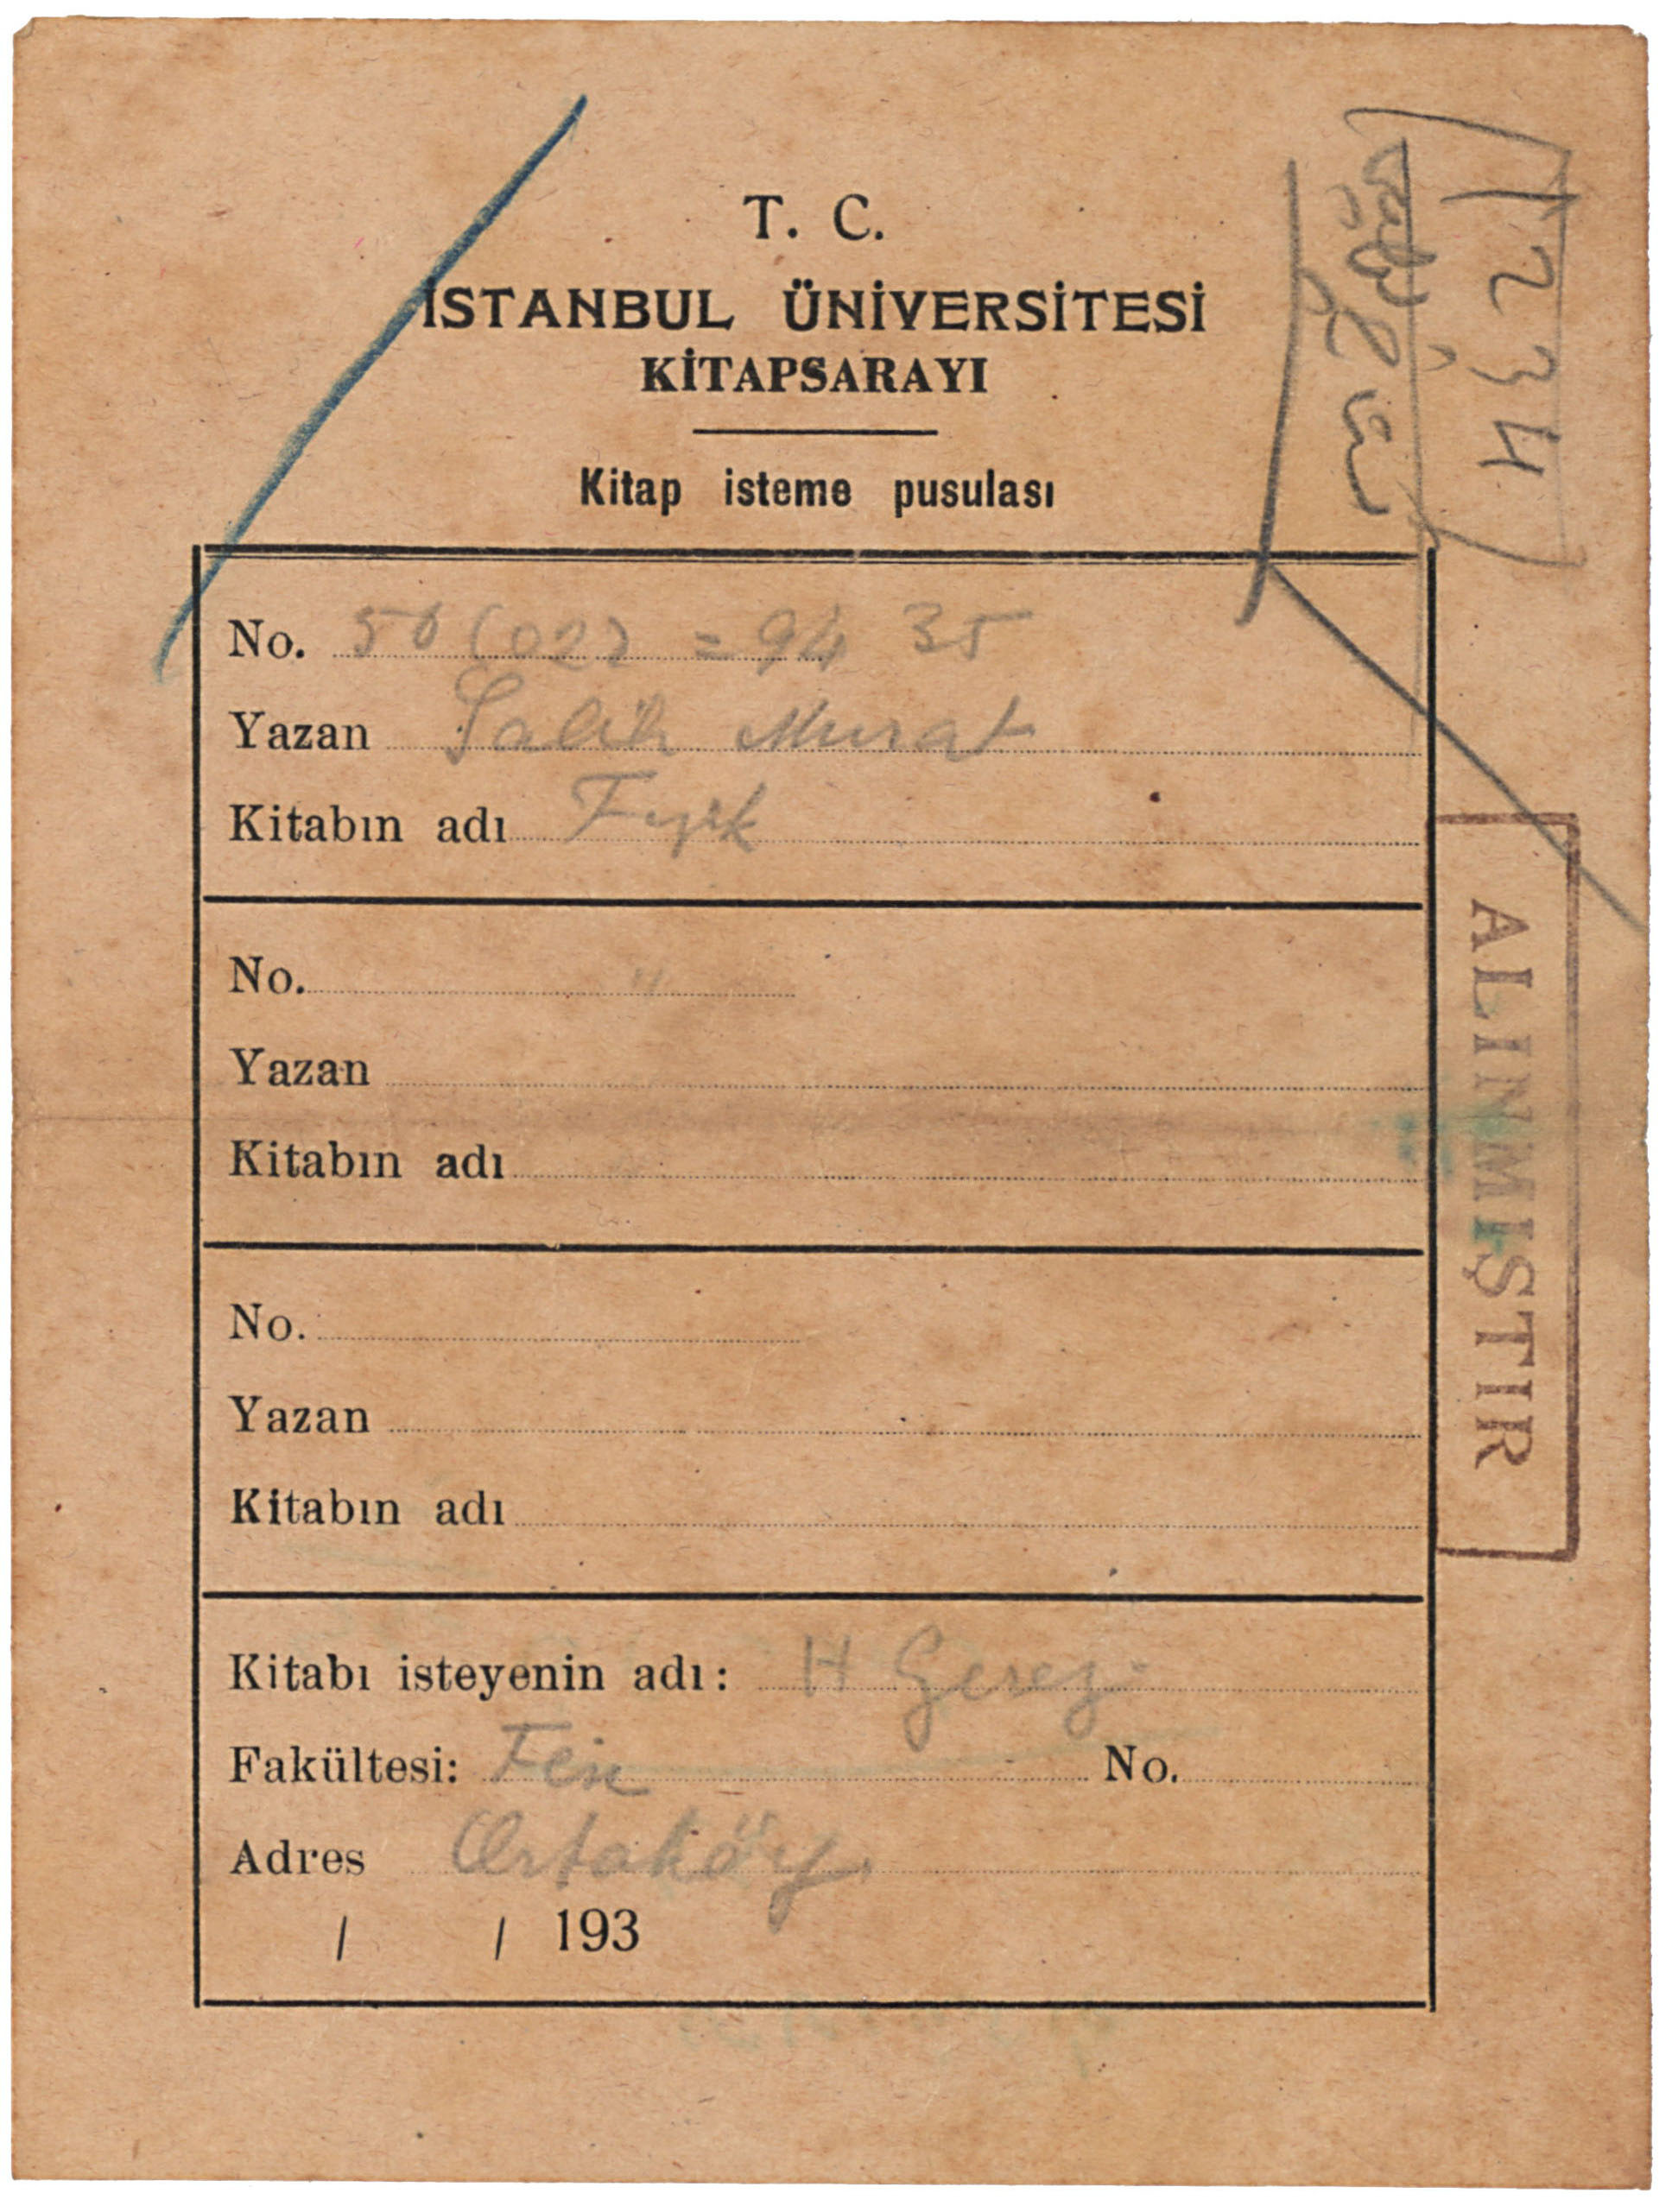 T. C.
İSTANBUL ÜNİVERSİTESİ
KİTAPSARAYI
Kitap isteme pusulası
No. 50 (022 = 94 35
Yazan Salih Murat
Kitabın adı Fizik
No.
Yazan
Kitabın adı
No.
Yazan
Kitabın adı
Kitabı isteyenin adı: H
Fakültesi: Fen No.
Adres Ortaköy.
/ / 193
1234
ALINMIŞTIR